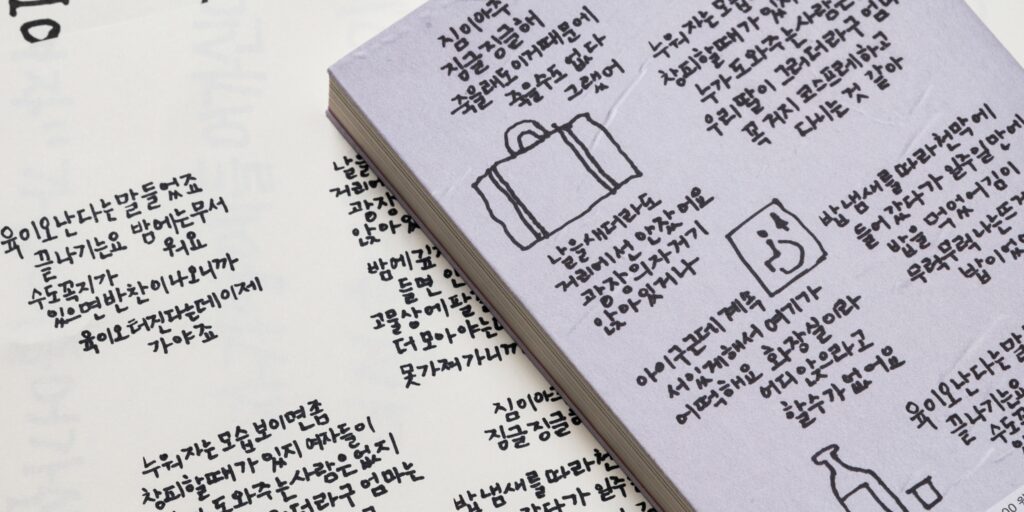 짐이아주
징글징글해
죽을래도이거때문에
죽을수도 없다
그랬어
누워자는모습
창피할때가 있지
누가 도와주는사람은
우리딸이 그러더라구 엄마
꼭 거지 코스프레하고
다니는 것 같아
날을새더라도
거리에서 안잤어요
광장의자거기
앉아있거나
밥냄새를따라천막에
들어갔다가 일주일만에
밥을 먹었어 김이
무럭무럭나는뜨거
밥이있
아이구근데계속
서있게해서 여기가
어떡해요 화장실이라
어디앉으라고
할수가없어요
육이오난다는말
끝나기는요
수도
있
육이오난다는말들었죠
끝나기는요 밤에는무서
워요
수도꼭지가
있으면반찬이나오니까
육이오터진다는데이제
가야죠
날을
거리에
광장
앉아있
밤에
들면
고물상에팔
더모아야는
못가져가니까
짐이아주
징글징글
누워자는모습보이면좀
창피할때가있지 여자들이
도와주는사람은없지
더라구 엄마는
밥냄새를따라천
갔다가 일주